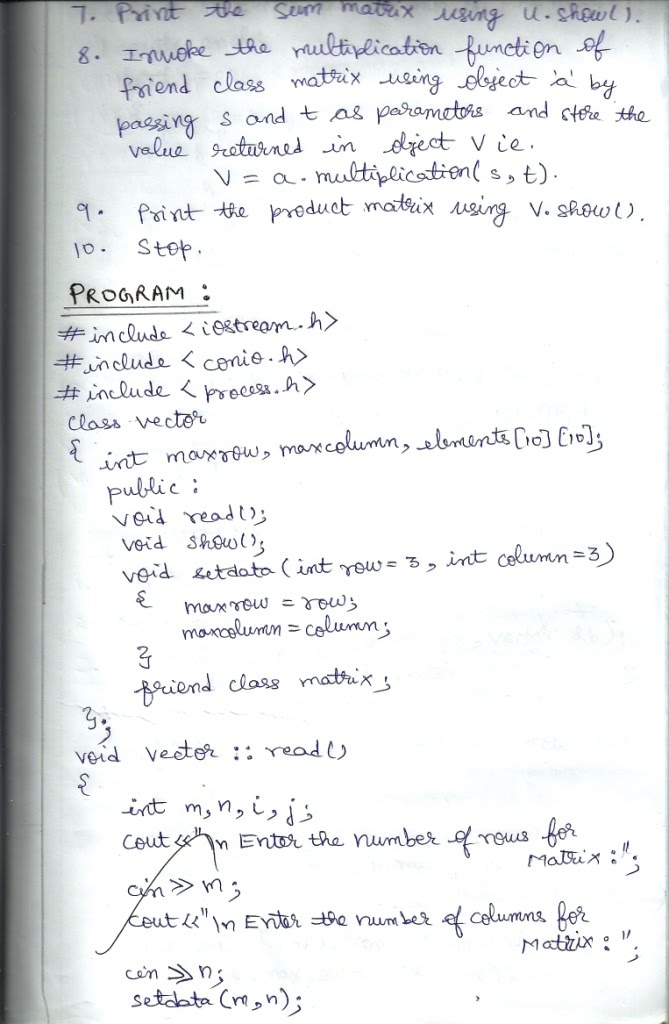 7. Print the sum matrix using u.show().
8. Invoke the multiplication function of
friend class matrix using object 'a' by
passing s and t as parameters and store the
value returned in object V ie.
V = a.multiplication(s, t).
9. Print the product matrix using V.show().
10. Stop.
PROGRAM :
#include <iostream.h>
#include <conio.h>
#include <process.h>
class vector
{ int maxrow, maxcolumn, elements[10][10];
public :
void read();
void show();
void setdata (int row = 3, int column = 3)
{ maxrow = row;
maxcolumn = column;
}
friend class matrix;
};
void vector :: read()
{
int m, n, i, j;
cout <<"\n Enter the number of rows for
Matrix :";
cin >> m;
cout <<"\n Enter the number of columns for
Matrix : ";
cin >> n;
setdata (m, n);